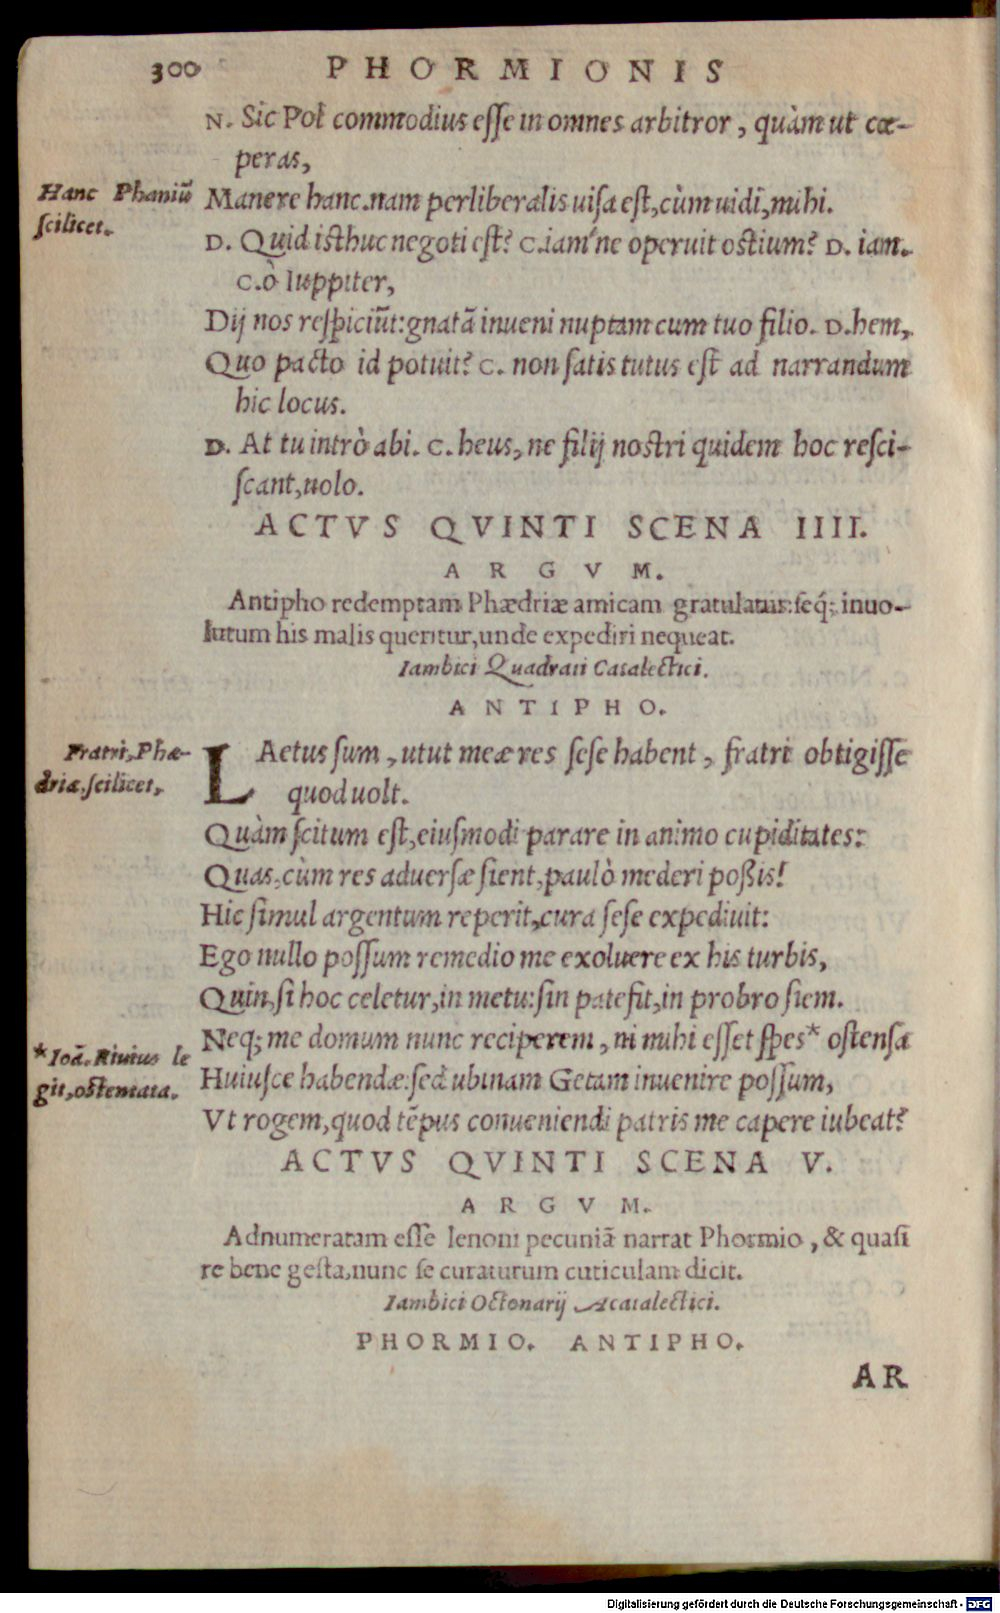 300 PHORMIONIS
N. Sic Pol commodius esse in omnes arbitror, quàm ut cœ-
peras,
Hanc Phaniũ
scilicet.
Manere hanc. nam perliberalis uisa est, cùm uidi, mihi.
D. Quid isthuc negoti est? C. iam'ne operuit ostium? D. iam.
C. ò Iuppiter,
Dij nos respiciũt: gnatã inueni nuptam cum tuo filio. D. hem,
Quo pacto id potuit? C. non satis tutus est ad narrandum
hic locus.
D. At tu intrò abi. C. heus, ne filij nostri quidem hoc resci-
scant, uolo.
ACTVS QVINTI SCENA IIII.
ARGVM.
Antipho redemptam Phædriæ amicam gratulatur: seq́; inuo-
lutum his malis queritur, unde expediri nequeat.
Iambici Quadrati Catalectici.
ANTIPHO.
Fratri, Phæ-
driæ, scilicet.
LAetus sum, utut meæ res sese habent, fratri obtigisse
quod uolt.
Quàm scitum est, eiusmodi parare in animo cupiditates:
Quas, cùm res aduersæ sient, paulò mederi poßis!
Hic simul argentum reperit, cura sese expediuit:
Ego nullo possum remedio me exoluere ex his turbis,
Quin, si hoc celetur, in metu: sin patefit, in probro siem.
Neq; me domum nunc reciperem, ni mihi esset spes* ostensa
*Ioã. Riuius le
git, ostentata.
Huiusce habendæ: sed ubinam Getam inuenire possum,
Vt rogem, quod tẽpus conueniendi patris me capere iubeat?
ACTVS QVINTI SCENA V.
ARGVM.
Adnumeratam esse lenoni pecuniã narrat Phormio, & quasi
re bene gesta, nunc se curaturum cuticulam dicit.
Iambici Octonarij Acatalectici.
PHORMIO. ANTIPHO.
AR
Digitalisierung gefördert durch die Deutsche Forschungsgemeinschaft - DFG